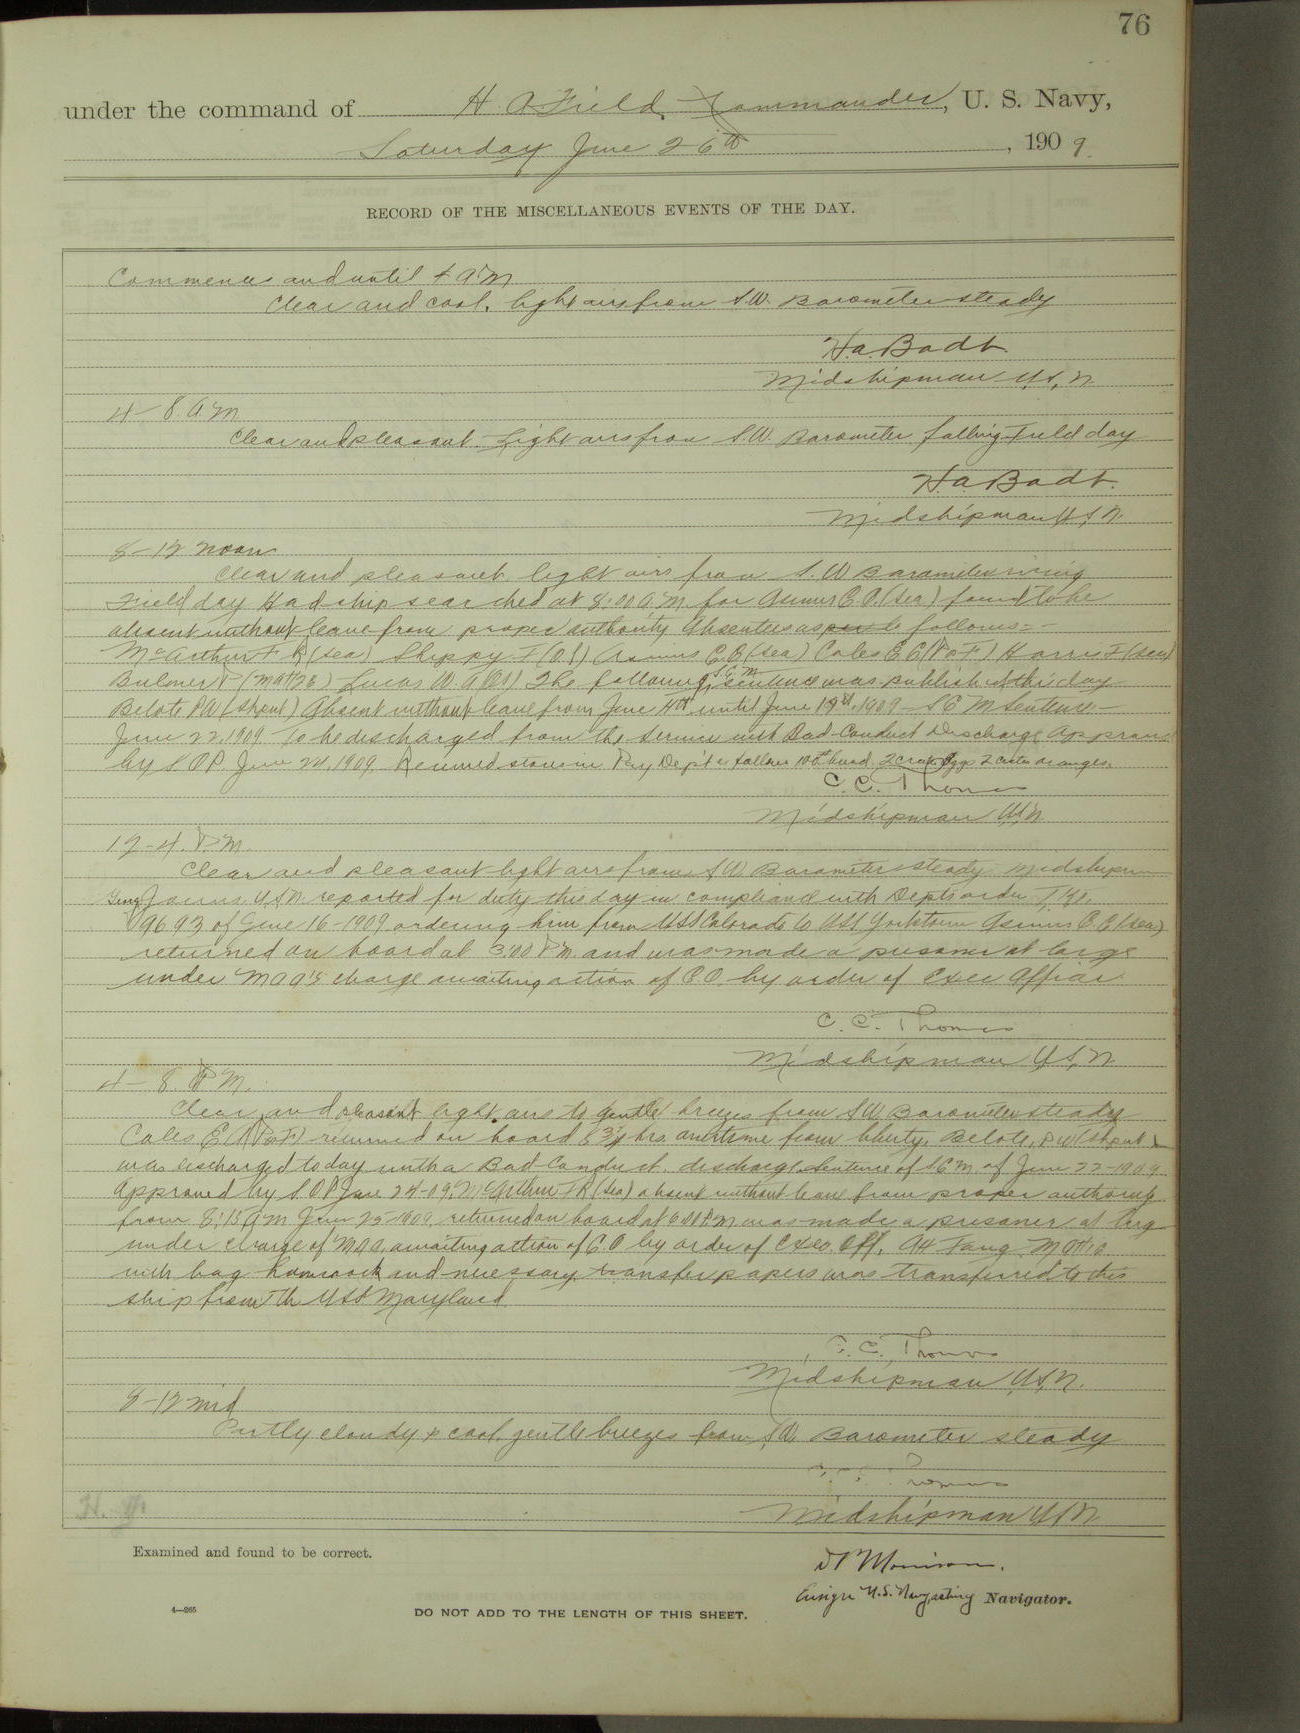 76
under the command of H. A. Field, Commander, U. S. Navy,
Saturday June 26th, 1909.
RECORD OF THE MISCELLANEOUS EVENTS OF THE DAY.
Commences and until 4 a.m.
Clear and cool, light airs from S.W. Barometer steady
H. a. Badt.
Midshipman U.S.N.
4-8 a.m
Clear and pleasant. Light airs from S.W. Barometer falling. Field day
H. a. Badt.
Midshipman U.S.N.
8-12 noon
Clear and pleasant light airs from S.W Barometer rising
Field day Had ship searched at 8:00 a.m. for Asmus C.C. (sea) found to be
absent without leave from proper authority Absentees as follows:-
McArthur F R (sea) Shippy F (O.S) Asmus C.C (sea) Cales E C (P&F) Harris F (sea)
Bulmer P (Matt 2c) Lucas W. A (OS) The following S.C.M sentence was published this day
Belote P.W (Shpwt) Absent without leave from June 4th until June 19th, 1909 - S C M Sentence -
June 22, 1909 To be discharged from the Service with Bad-Conduct Discharge Approved
by S O P. June 24, 1909. Received stores in Pay Dep't as follows 100# bread, 2 crates Eggs 2 crates oranges.
C. C. Thomas
Midshipman U.S.N.
12-4. P.M.
Clear and pleasant light airs from S.W Barometer steady Midshipman
U.S.N. reported for duty this day in compliance with Depts order
9693 of June 16-1909 ordering him from USS Colorado to USS Yorktown Asmus C.C (sea)
returned on board at 3:00 P.M. and was made a prisoner at large
under M A A's charge awaiting action of C.O. by order of Exec Officer.
C. C. Thomas
Midshipman U.S.N.
4-8 P.M.
Clear and pleasant light airs to gentle breezes from S.W Barometer steady
Cales E C (P&F) returned on board hrs. overtime from liberty. Belote, P W (Shpwt)
was discharged today with a Bad-Conduct discharge. Sentence of S C M of June 22-1909
Approved by S.O.P June 24-09. McArthur F R (Sea) absent without leave from proper authority
from 8:15 a m June 25-1909, returned on board at P M was made a prisoner at large
under charge of M.A.A. awaiting action of C.O by order of Exec. Off. Ah Fang
with bag hammock and necessary transfer papers was transferred to this
ship from the USS Maryland
C. C. Thomas
Midshipman U.S.N.
8-12 mid
Partly cloudy & cool, gentle breezes from S.W Barometer steady
C. C. Thomas
Midshipman U.S.N
Examined and found to be correct.
Morrison.
Ensign U.S. Navy, acting Navigator.
4—265
DO NOT ADD TO THE LENGTH OF THIS SHEET.